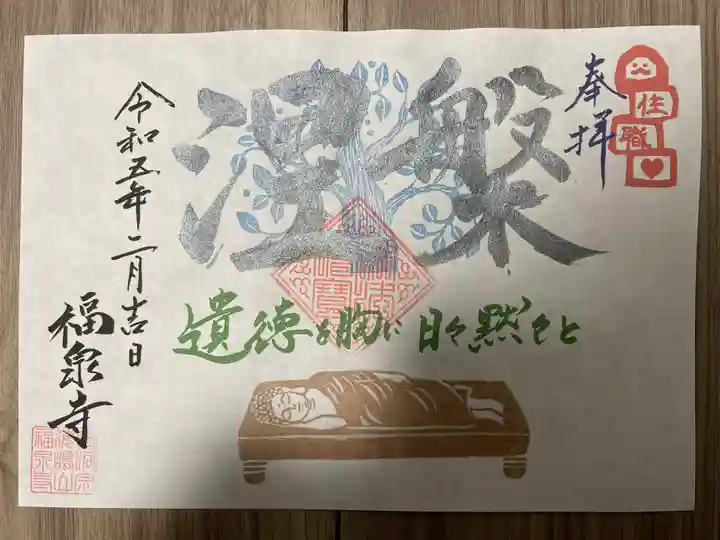 奉拝
住職
涅槃
遺徳を胸に日々黙々と
令和五年二月吉日
福泉寺